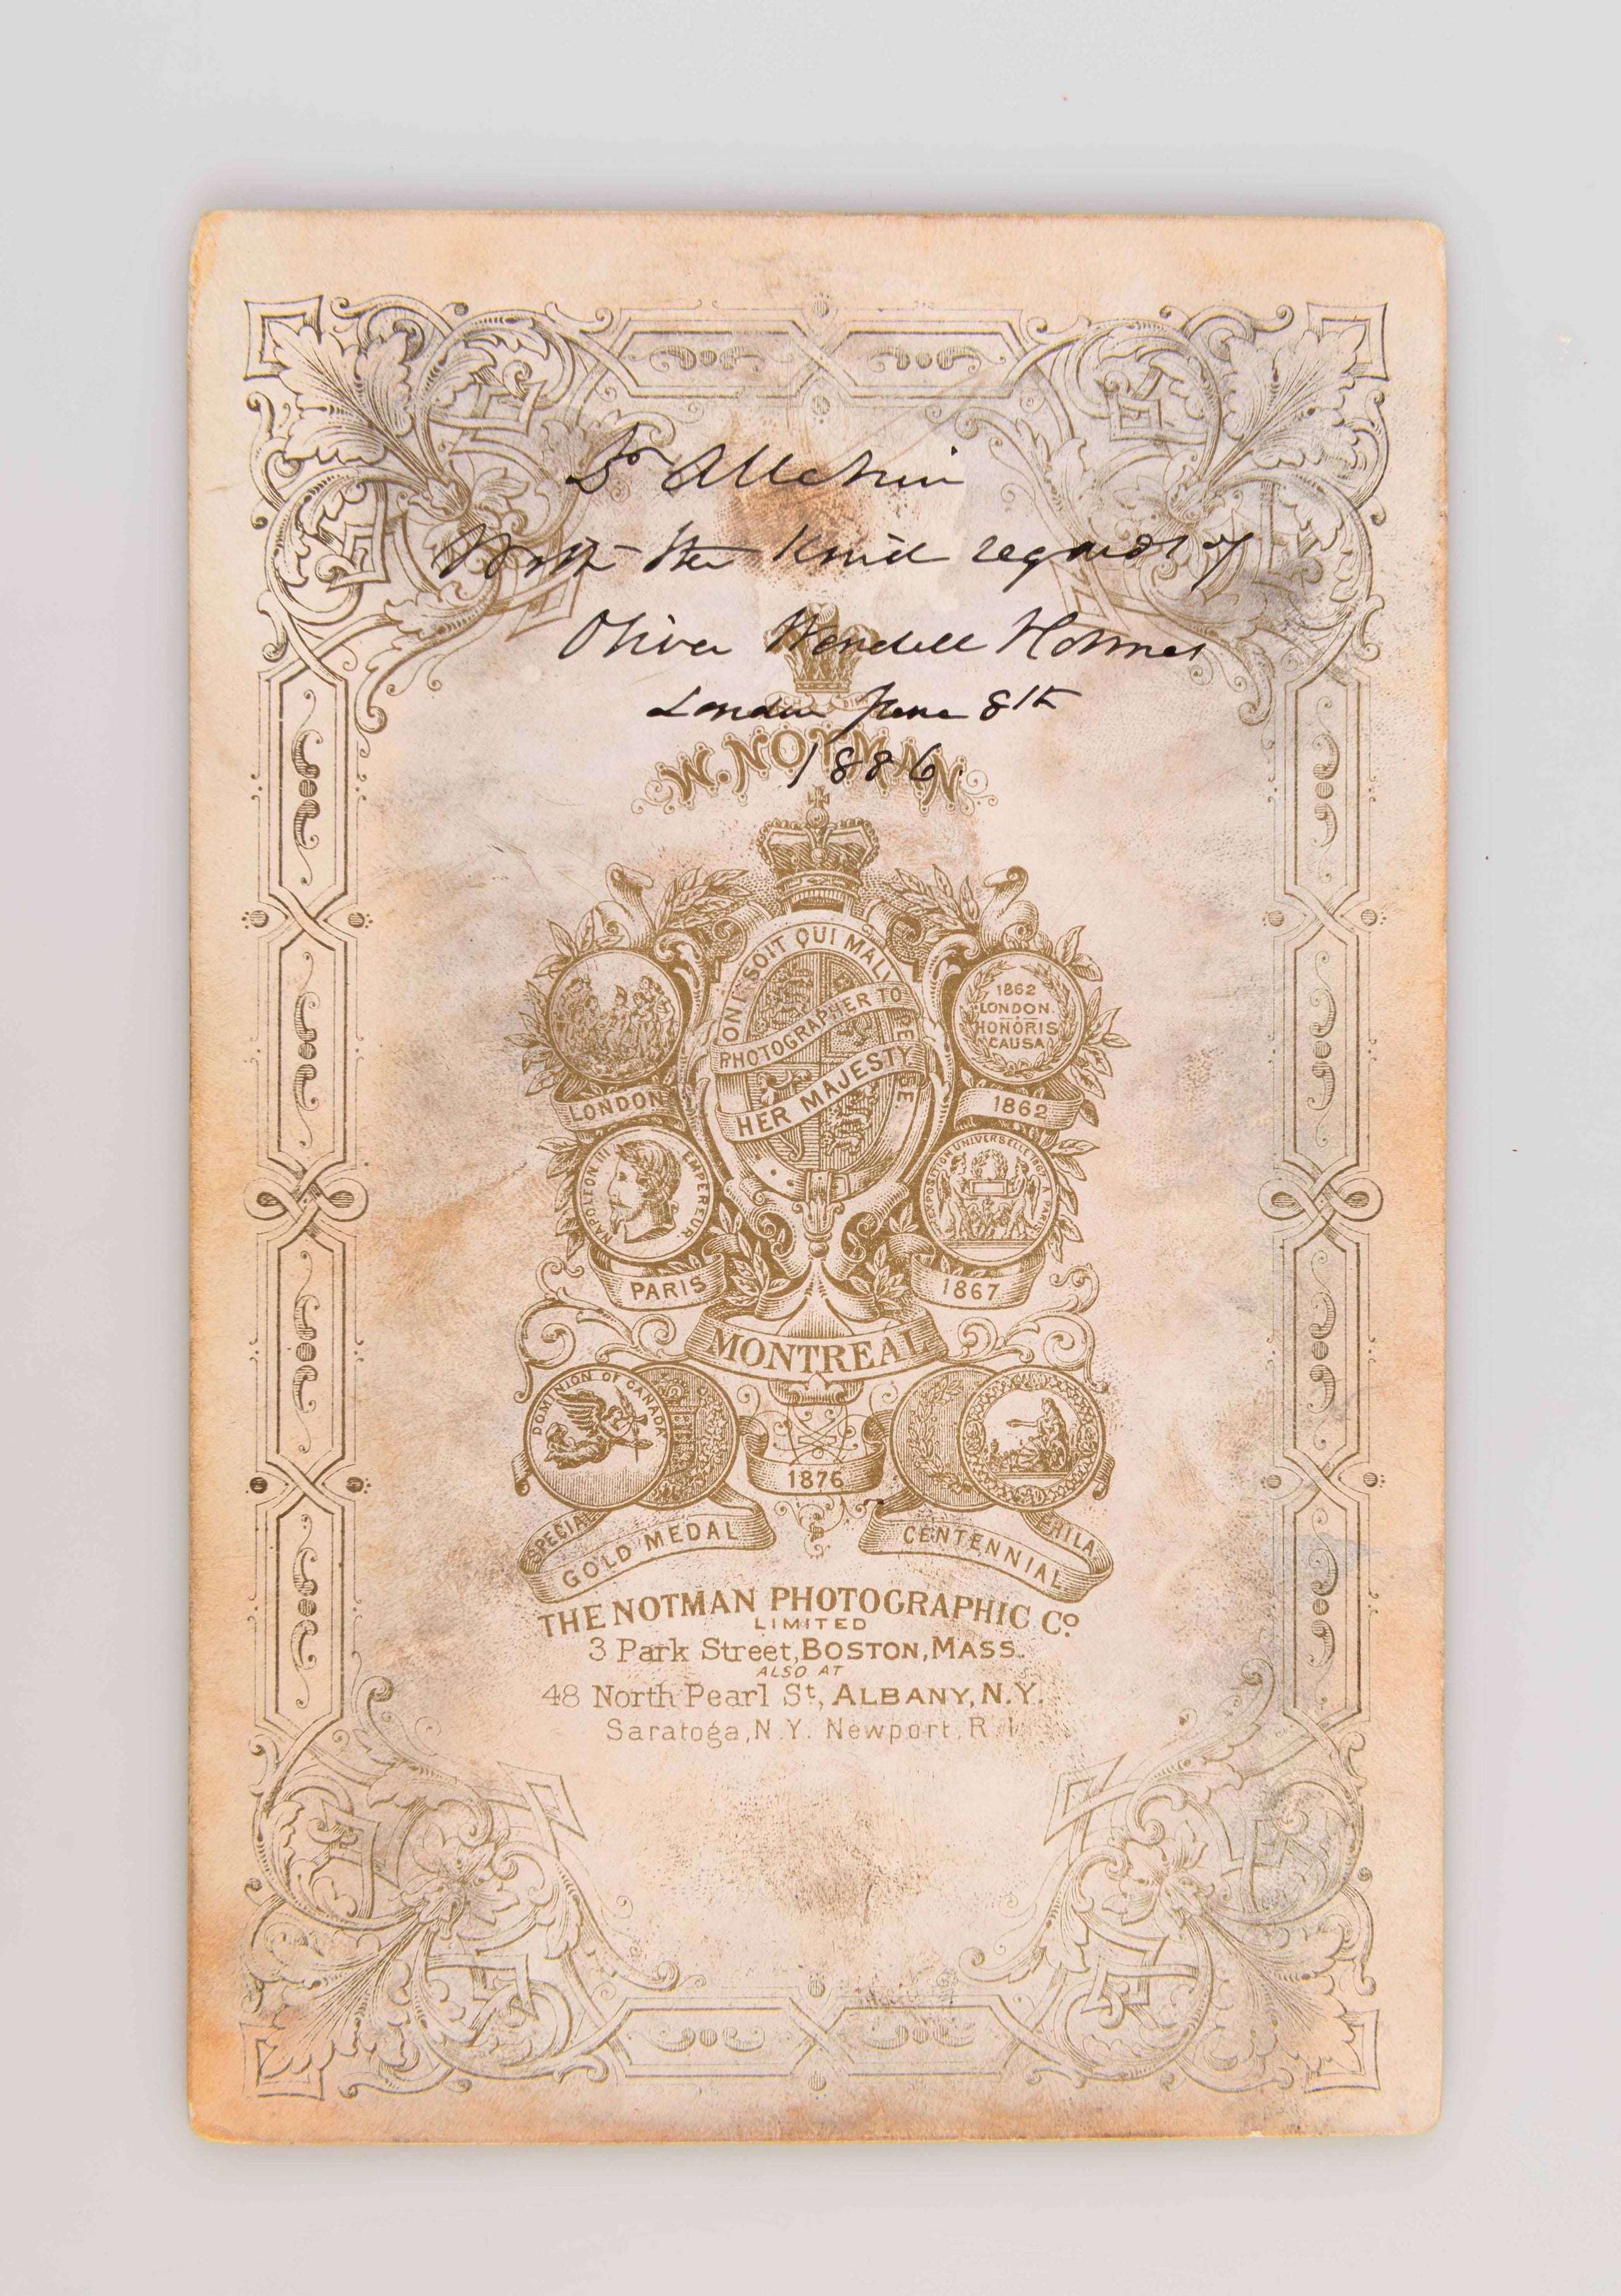 Dr Allchin
With the kind regards of
Oliver Wendell Holmes
London June 8th
1886.
W. NOTMAN
HONI SOIT QUI MAL Y PENSE
PHOTOGRAPHER TO
HER MAJESTY
1862
LONDON.
HONORIS
CAUSA
LONDON
1862
NAPOLEON III EMPEREUR
EXPOSITION UNIVERSELLE
PARIS
1867
MONTREAL
DOMINION OF CANADA
1876
SPECIAL
GOLD MEDAL
CENTENNIAL
PHILA
THE NOTMAN PHOTOGRAPHIC Co
LIMITED
3 Park Street, BOSTON, MASS.
ALSO AT
48 North Pearl St, ALBANY, N.Y.
Saratoga, N.Y. Newport, R.I.